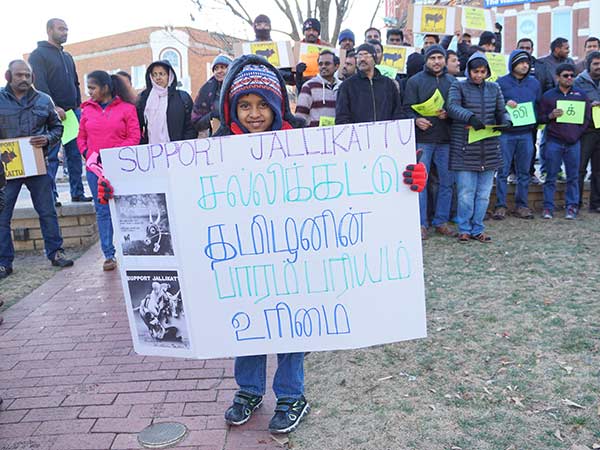 SUPPORT JALLIKATTU
சல்லிக்கட்டு
தமிழனின்
பாரம்பரியம்
உரிமை
SUPPORT JALLIKATTU
லி
க்